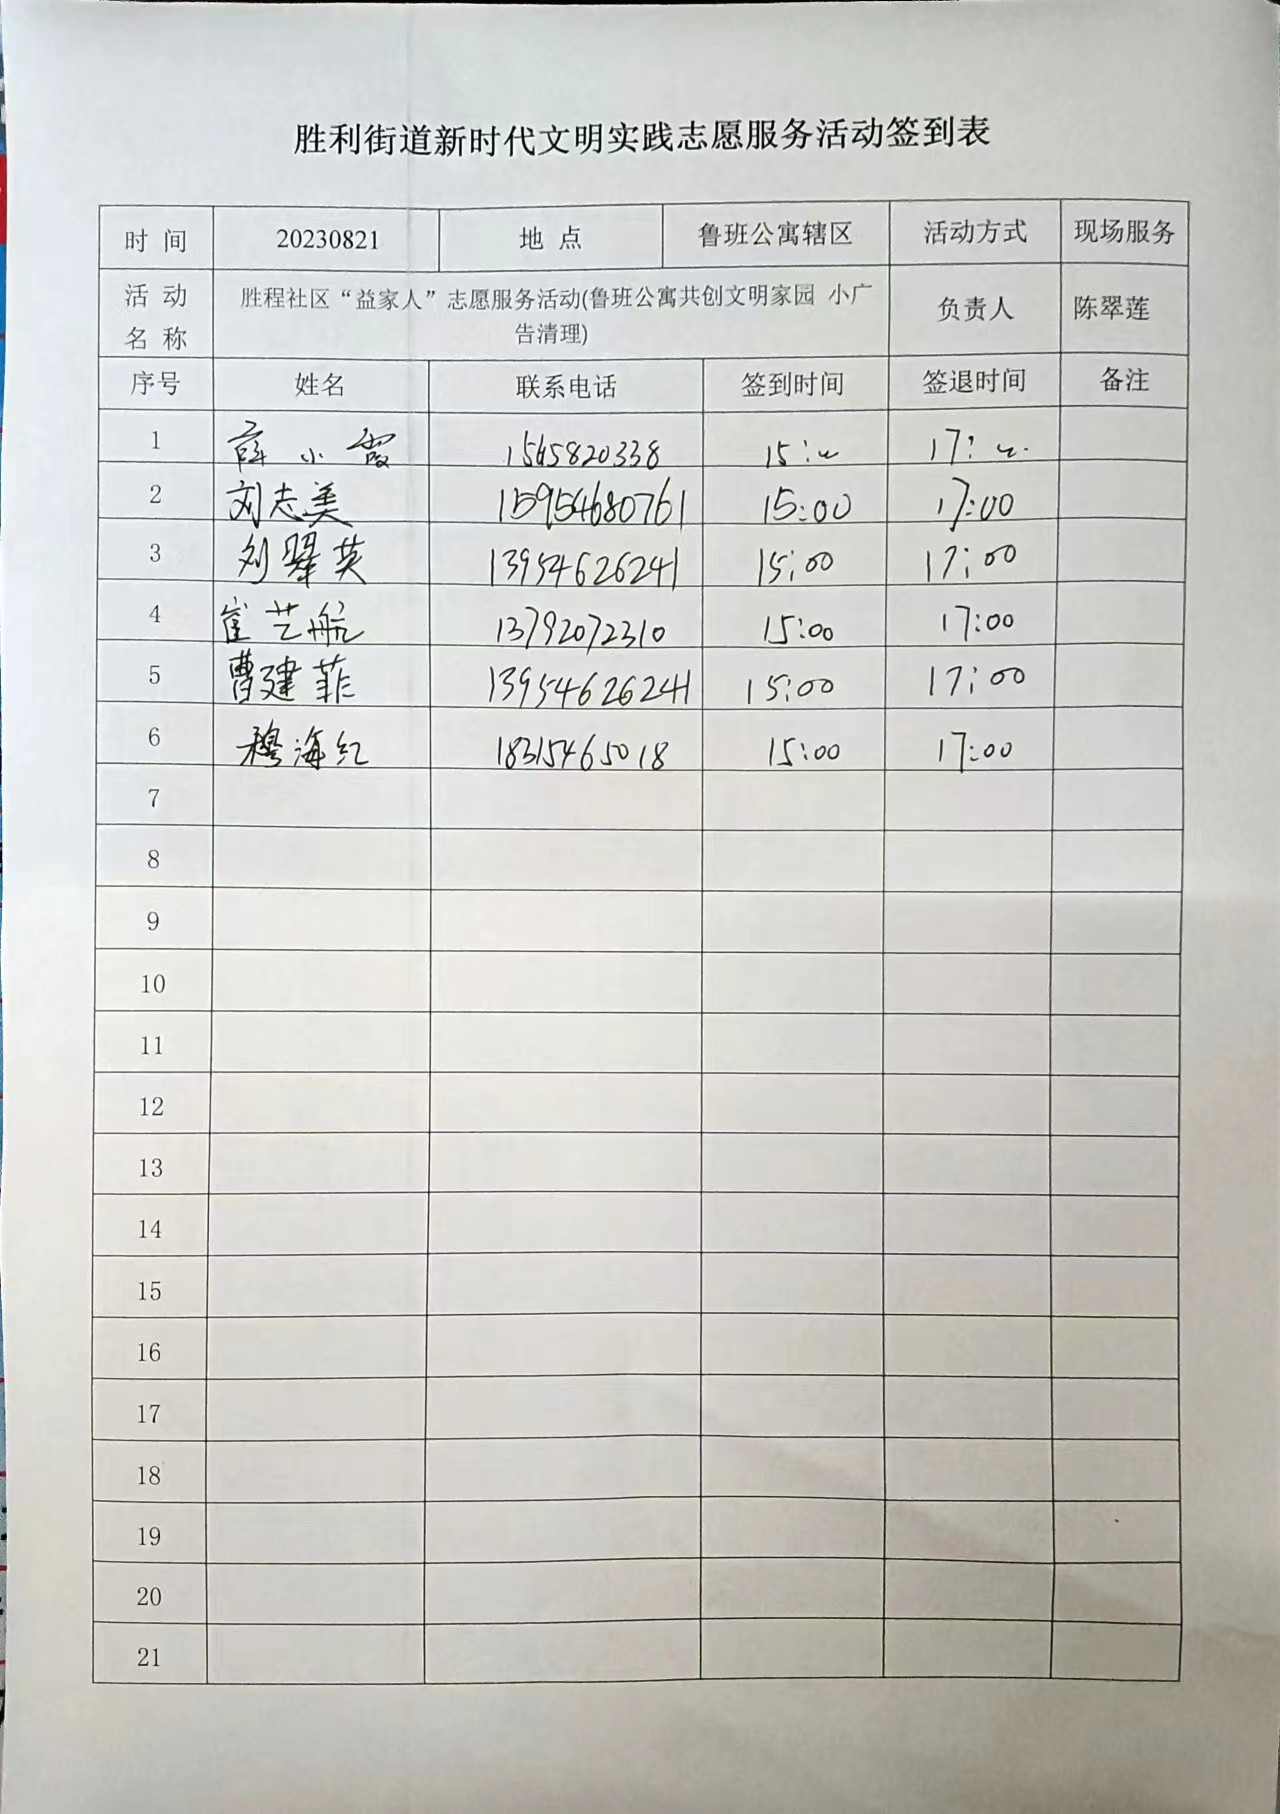 胜利街道新时代文明实践志愿服务活动签到表
时 间 20230821 地 点 鲁班公寓辖区 活动方式 现场服务
活 动 名 称 胜程社区“益家人”志愿服务活动(鲁班公寓共创文明家园 小广告清理) 负责人 陈翠莲
序号 姓名 联系电话 签到时间 签退时间 备注
1 薛小霞 1565820338 15: 17:
2 刘志美 15954680761 15:00 17:00
3 刘翠英 13954626241 15:00 17:00
4 崔艺航 13792072310 15:00 17:00
5 曹建菲 13954626241 15:00 17:00
6 穆海红 18315465018 15:00 17:00
7
8
9
10
11
12
13
14
15
16
17
18
19
20
21